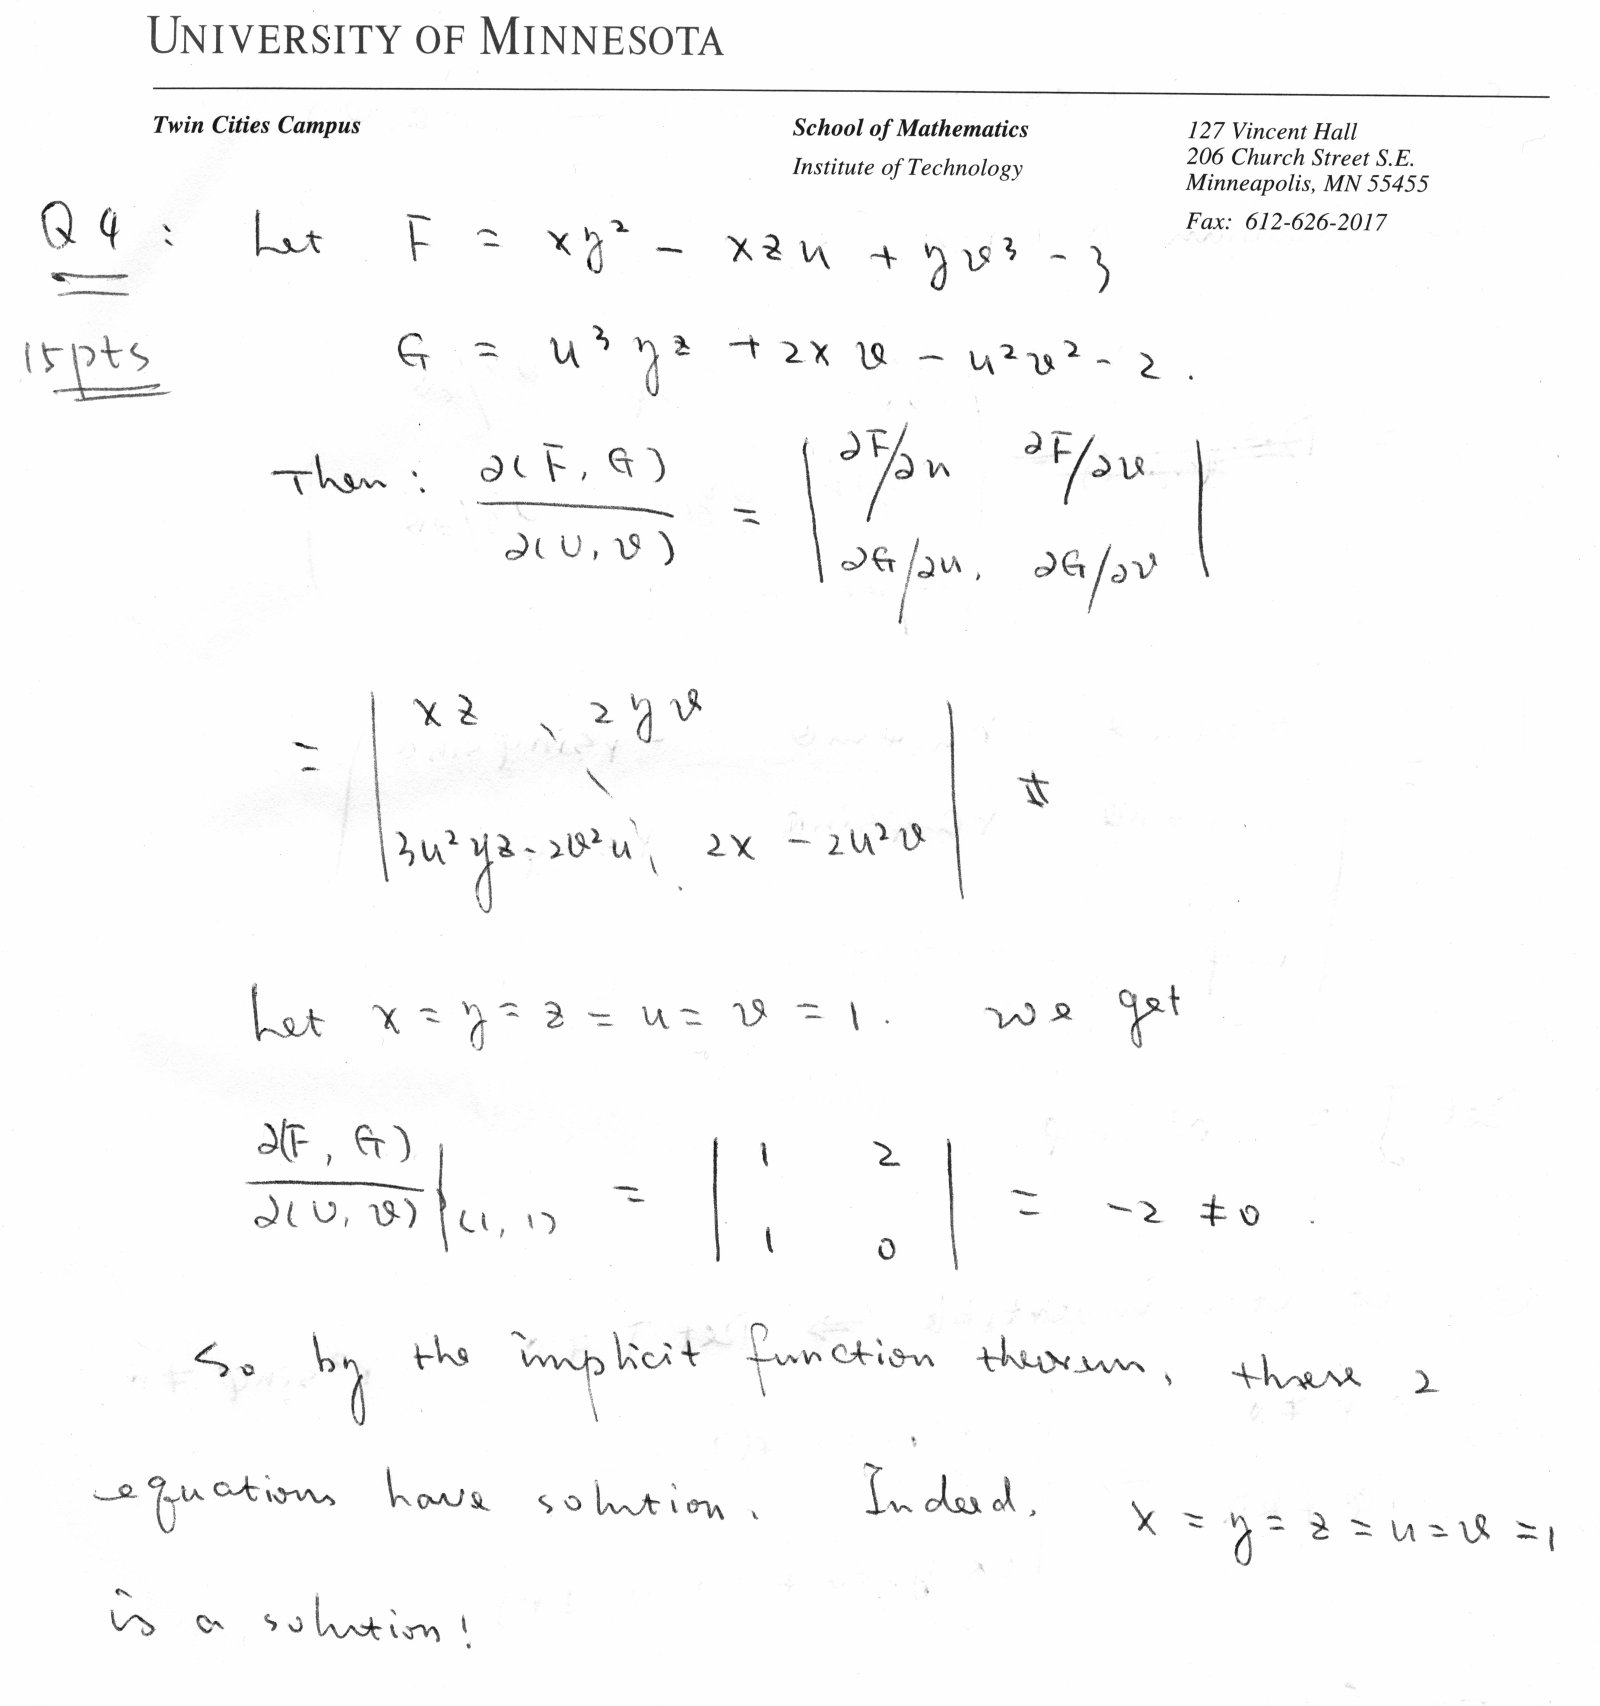 UNIVERSITY OF MINNESOTA
Twin Cities Campus
School of Mathematics
Institute of Technology
127 Vincent Hall
206 Church Street S.E.
Minneapolis, MN 55455
Fax: 612-626-2017
Q4: Let F = xy² - xzu + yv³ - 3
15pts G = u³yz + 2xv - u²v² - 2.
Then: ∂(F, G)/∂(U, v) = | ∂F/∂u ∂F/∂v |
| ∂G/∂u, ∂G/∂v |
= | xz, 2yv |
| 3u²yz - 2v²u, 2x - 2u²v |
Let x = y = z = u = v = 1. we get
∂(F, G)/∂(U, v) |(1, 1) = | 1 2 |
| 1 0 | = -2 ≠ 0.
So by the implicit function theorem, these 2
equations have solution. Indeed, x = y = z = u = v = 1
is a solution!